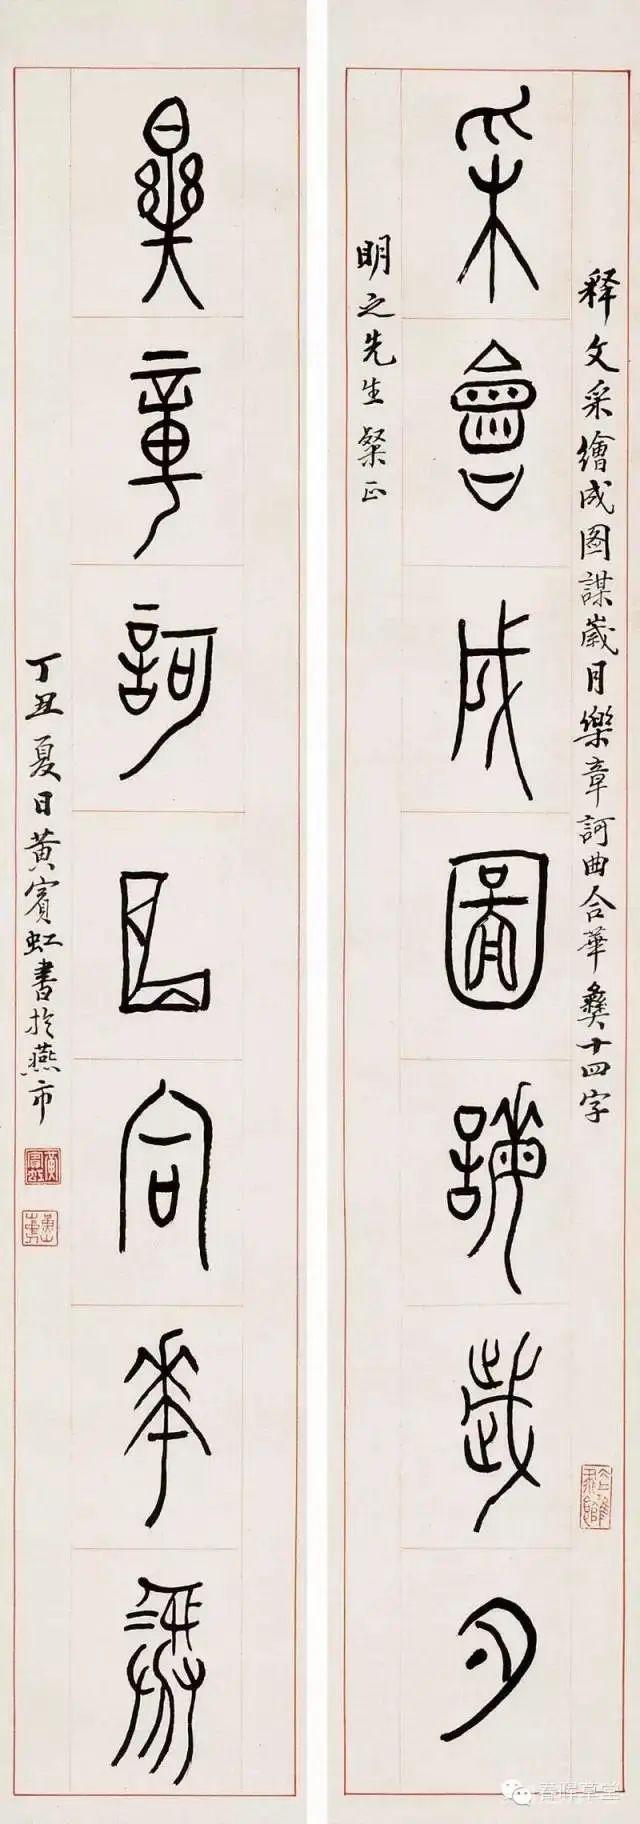 采會成圖謀歲月
释文采繪成図謀歲月樂章訶曲合華彝十四字
明之先生粲正
樂章訶曲合華彝
丁丑夏日黃賓虹書於燕市
春晖草堂